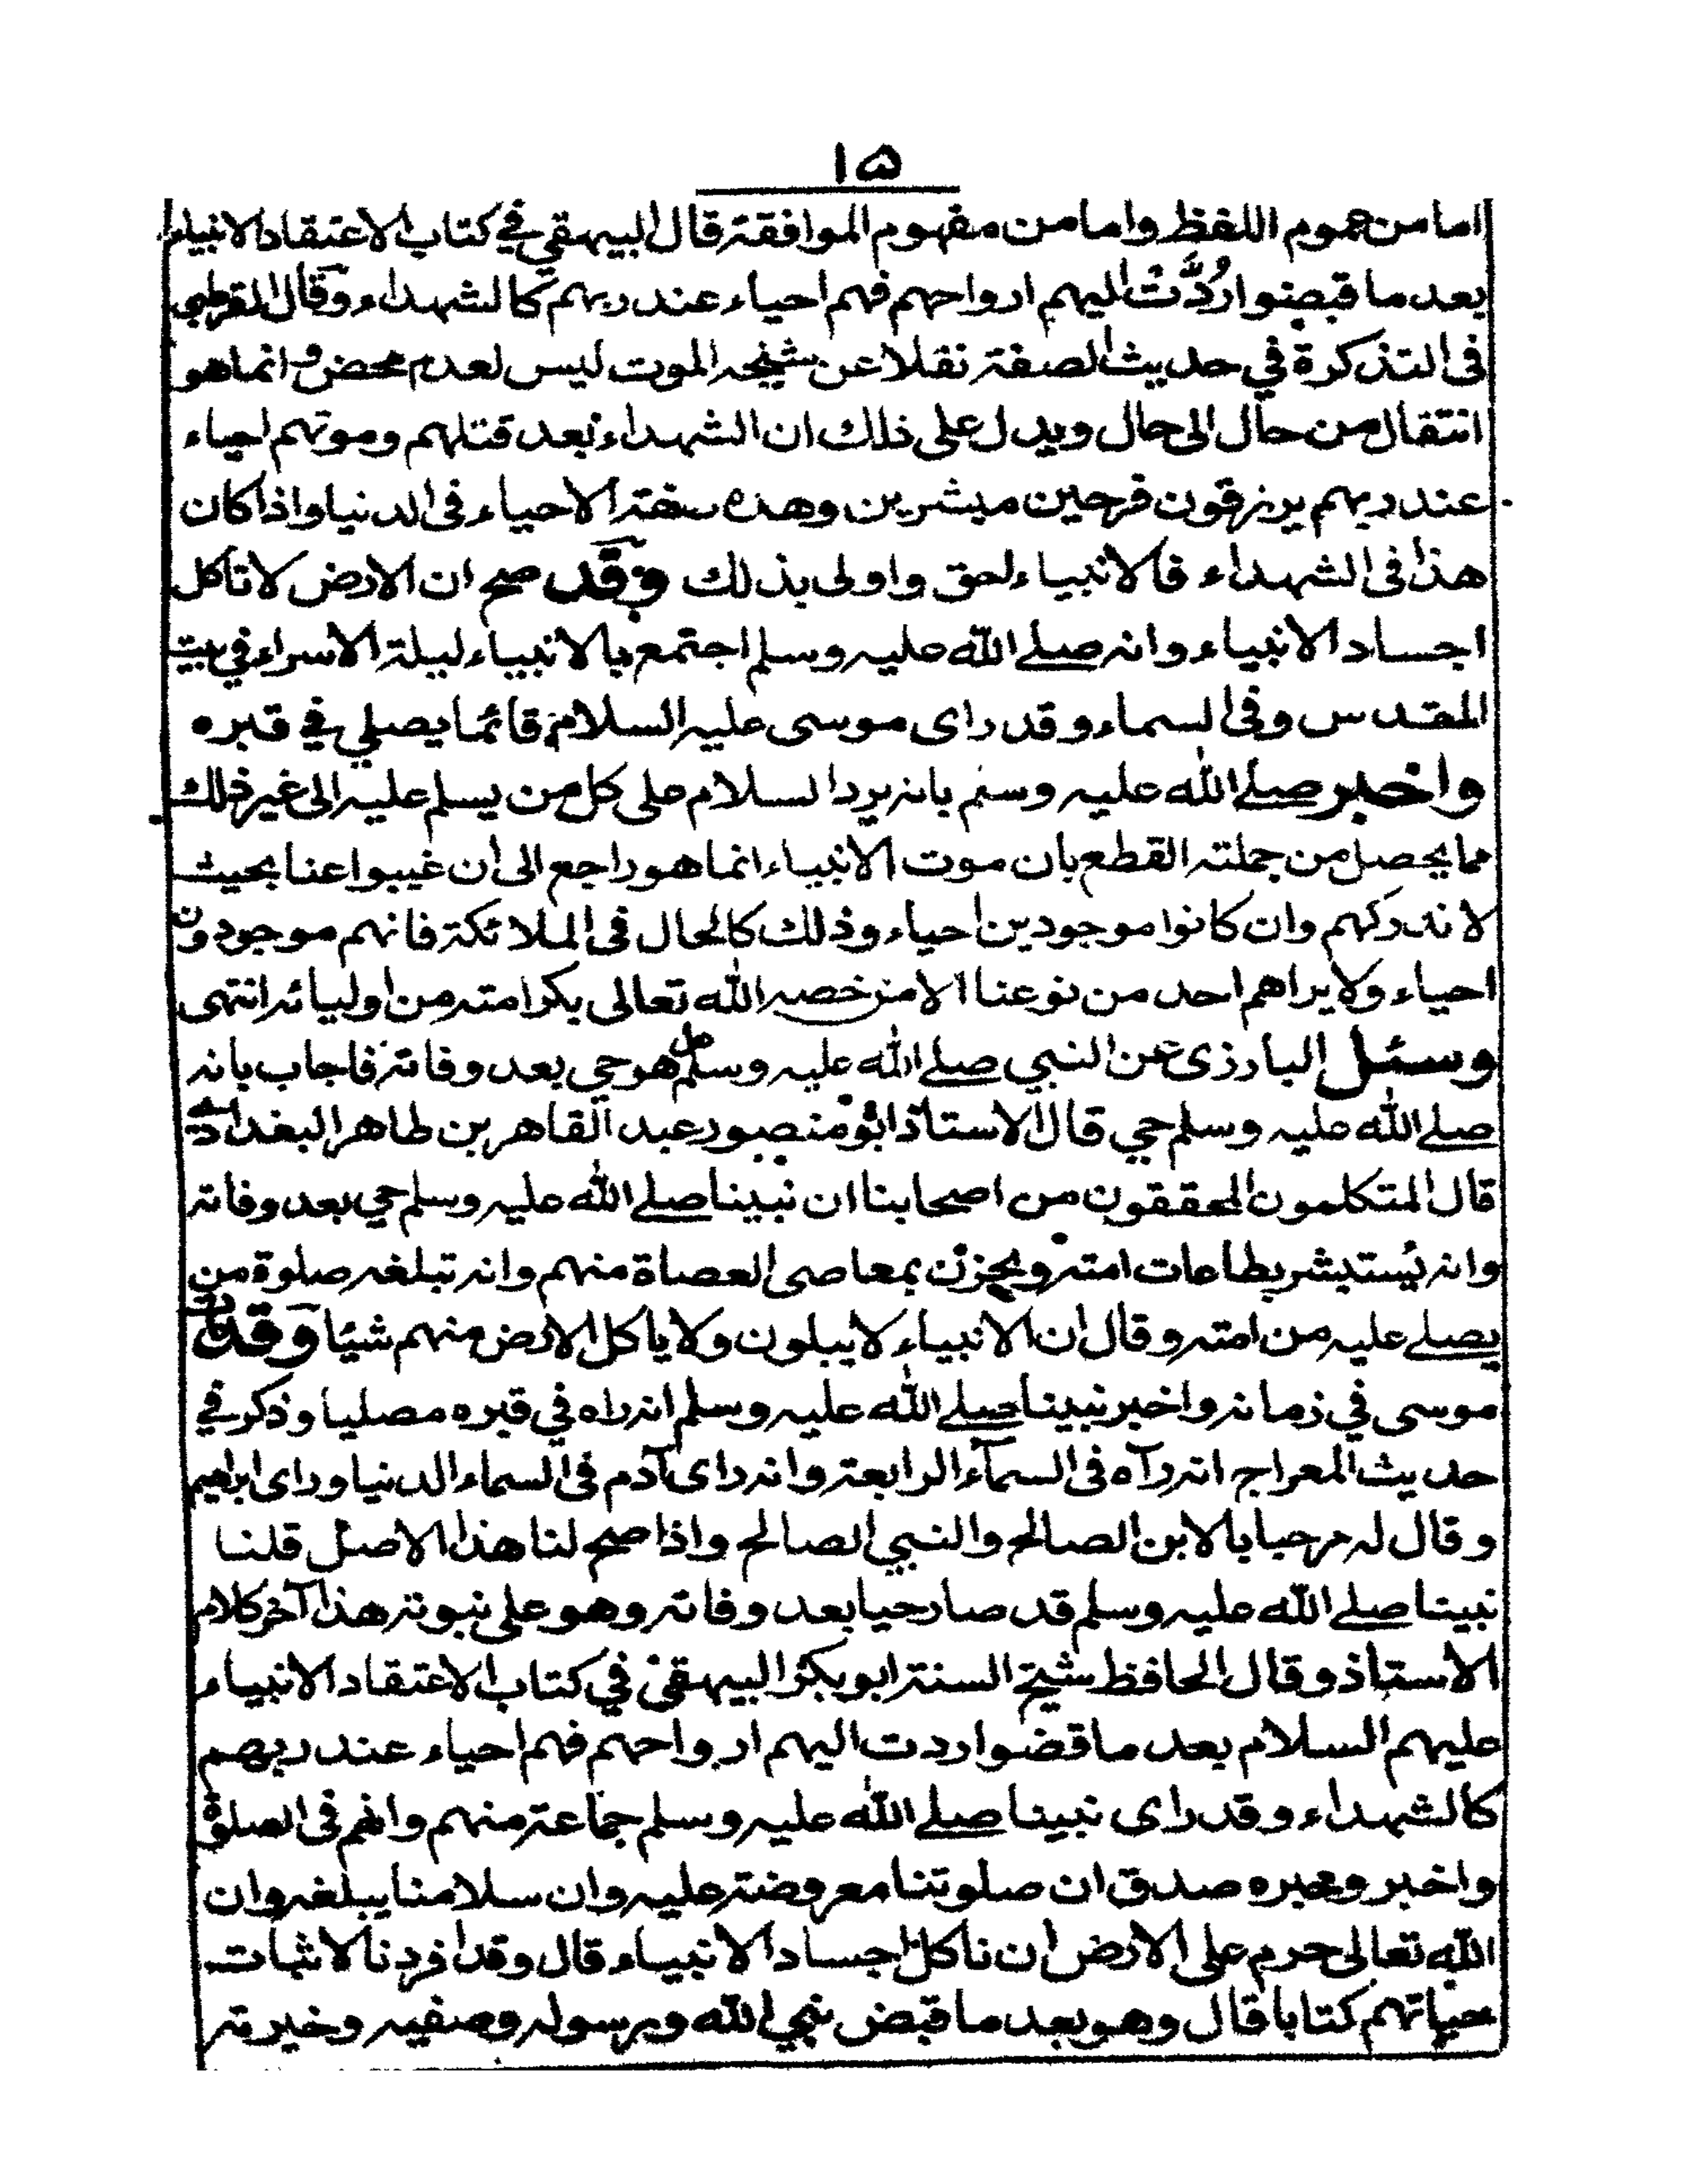 ١٥
اما من عموم اللفظ واما من مفهوم الموافقة قال البيهقي في كتاب الاعتقاد الانبياء
بعد ما قبضوا ردّت اليهم ارواحهم فهم احياء عند ربهم كالشهداء وقال القرطبي
فى التذكرة في حديث الصفة نقلا عن شيخه الموت ليس لعدم محض وانما هو
انتقال من حال الى حال ويدل على ذلك ان الشهداء بعد قتلهم وموتهم احياء
عند ربهم يرزقون فرحين مبشرين وهذه صفة الاحياء فى الدنيا واذا كان
هذا فى الشهداء فالانبياء احق واولى بذلك وقد صح ان الارض لا تاكل
اجساد الانبياء وانه صلى الله عليه وسلم اجتمع بالانبياء ليلة الاسراء في بيت
المقدس وفى السماء وقد راى موسى عليه السلام قائما يصلي في قبره
واخبر صلى الله عليه وسلم بانه يرد السلام على كل من يسلم عليه الى غير ذلك
مما يحصل من جملته القطع بان موت الانبياء انما هو راجع الى ان غيبوا عنا بحيث
لا ندركهم وان كانوا موجودين احياء وذلك كالحال فى الملائكة فانهم موجودون
احياء ولا يراهم احد من نوعنا الا من خصه الله تعالى بكرامته من اوليائه انتهى
وسئل البارزى عن النبي صلى الله عليه وسلم هل هو حي بعد وفاته فاجاب بانه
صلى الله عليه وسلم حي قال الاستاذ ابو منصور عبد القاهر بن طاهر البغدادي
قال المتكلمون المحققون من اصحابنا ان نبينا صلى الله عليه وسلم حي بعد وفاته
وانه يستبشر بطاعات امته ويحزن بمعاصى العصاة منهم وانه تبلغه صلوة من
يصلى عليه من امته وقال ان الانبياء لا يبلون ولا ياكل الارض منهم شيئا وقد مات
موسى في زمانه واخبر نبينا صلى الله عليه وسلم انه راه في قبره مصليا وذكر في
حديث المعراج انه رآه فى السمآء الرابعة وانه راى آدم فى السماء الدنيا وراى ابراهيم
وقال له مرحبا بالابن الصالح والنبي الصالح واذا صح لنا هذا الاصل قلنا
نبينا صلى الله عليه وسلم قد صار حيا بعد وفاته وهو على نبوته هذا آخر كلام
الاستاذ وقال الحافظ شيخ السنة ابو بكر البيهقى في كتاب الاعتقاد الانبياء
عليهم السلام بعد ما قضوا ردت اليهم ارواحهم فهم احياء عند ربهم
كالشهداء وقد راى نبينا صلى الله عليه وسلم جماعة منهم وامهم فى الصلوة
واخبر وخبره صدق ان صلوتنا معروضة عليه وان سلامنا يبلغه وان
الله تعالى حرم على الارض ان تاكل اجساد الانبياء قال وقد افردنا لاثبات
حياتهم كتابا قال وهو بعد ما قبض نبي الله ورسوله وصفيه وخيرته